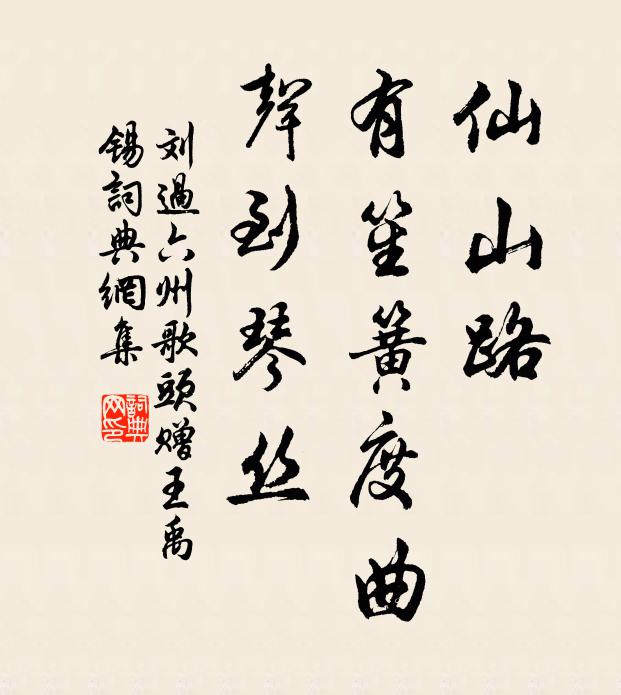 仙山路
有笙簧度曲
聲到琴丝
刘過六州歌頭赠王禹
锡詞典網集
詞典网印